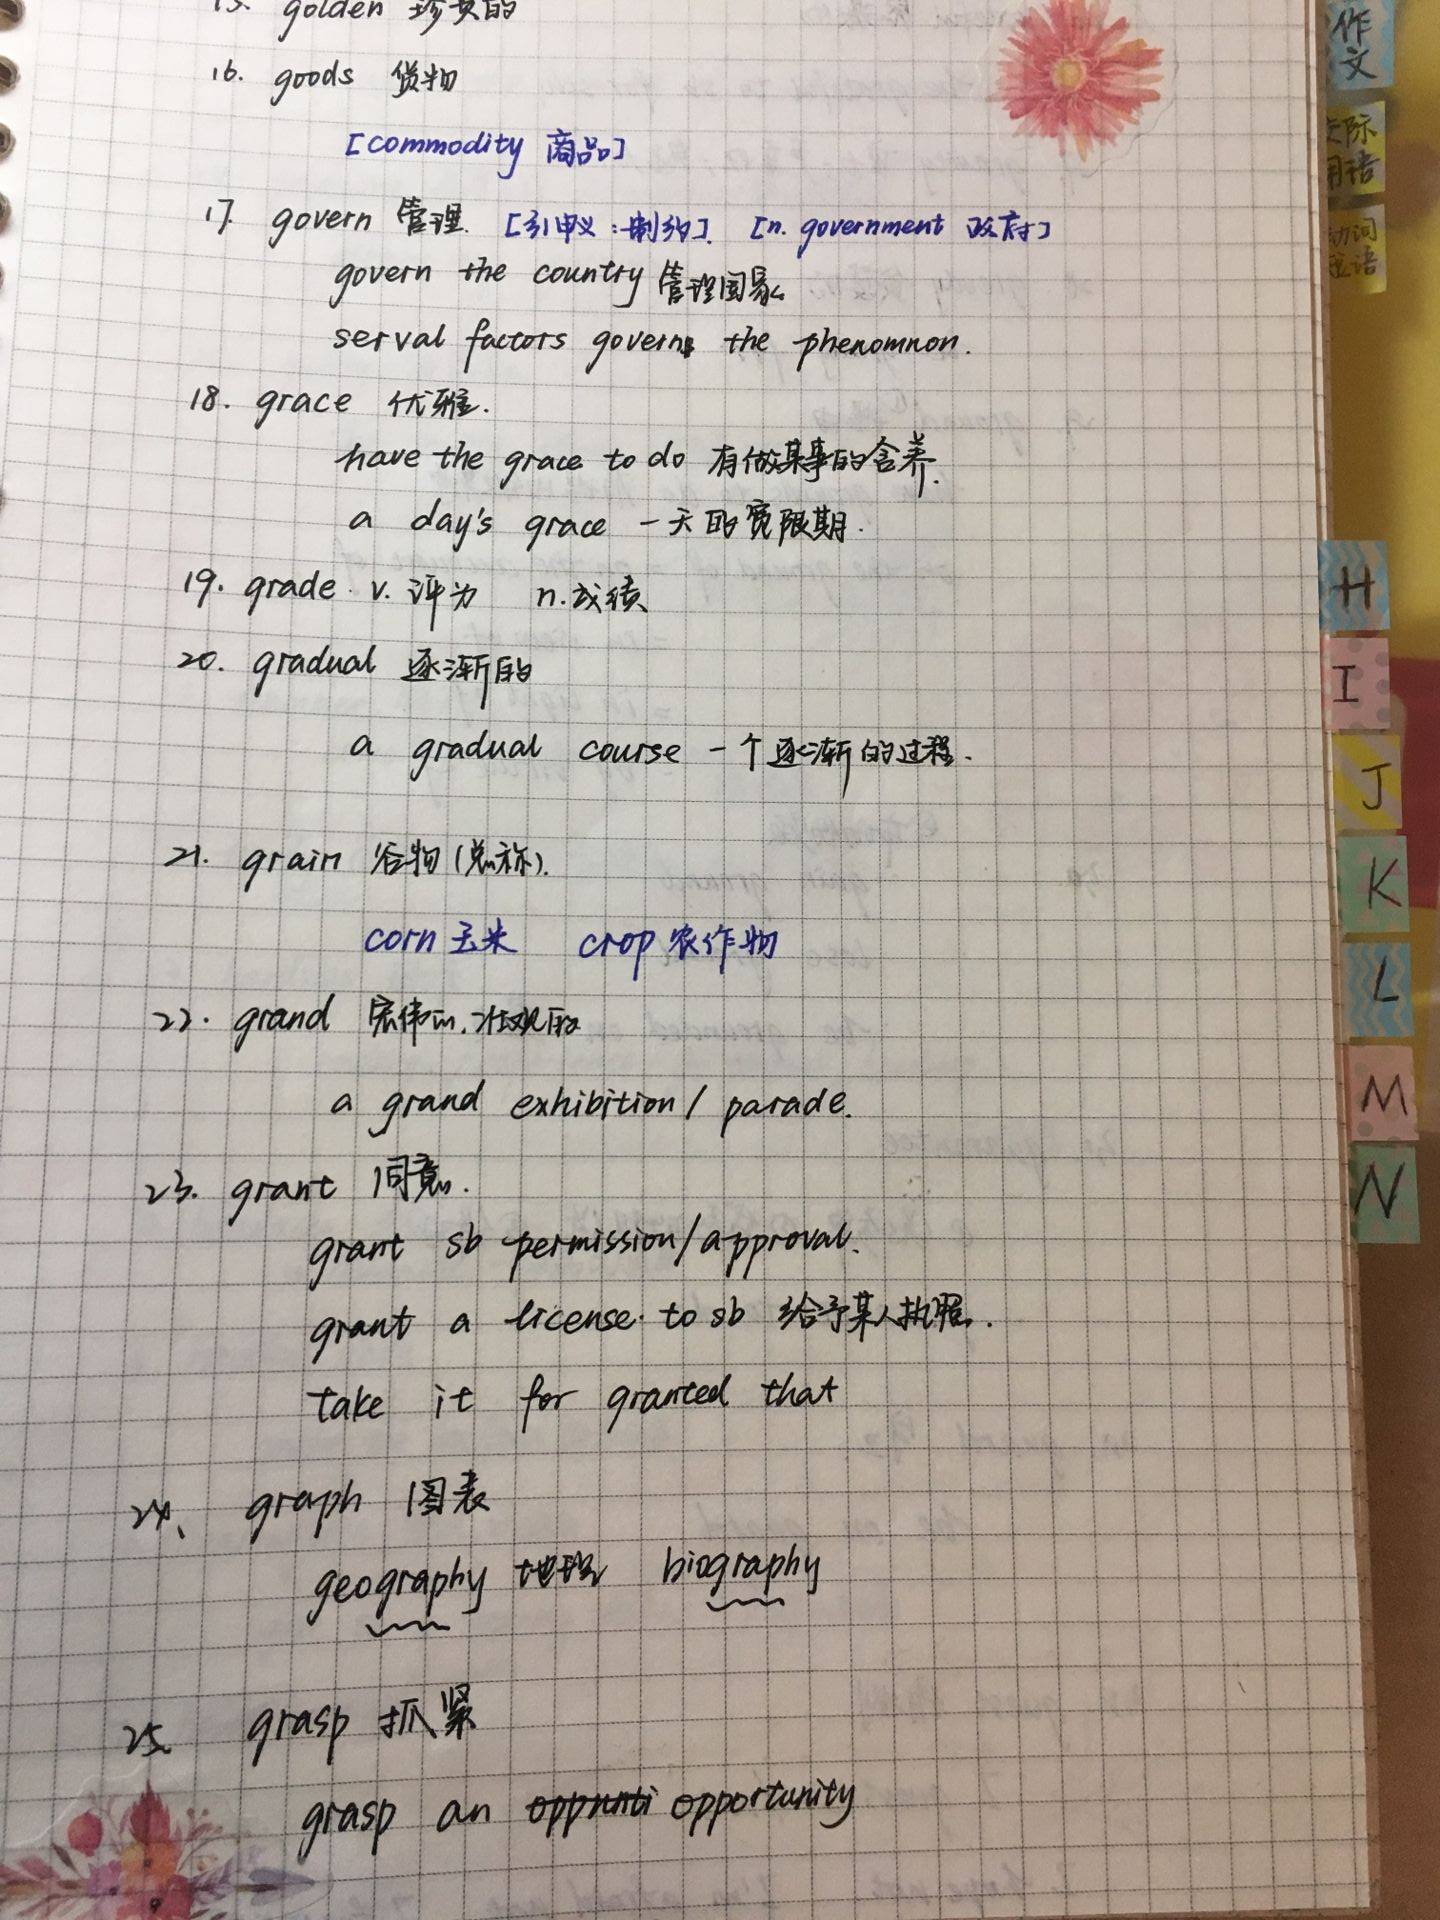 15. golden 珍贵的
16. goods 货物
[commodity 商品]
17. govern 管理. [引申义:制约]. [n. government 政府]
govern the country 管理国家
serval factors govern the phenomnon.
18. grace 优雅.
have the grace to do 有做某事的含养.
a day's grace 一天的宽限期.
19. grade. v. 评为 n.成绩
20. gradual 逐渐的
a gradual course 一个逐渐的过程.
21. grain 谷物(总称).
corn 玉米 crop 农作物
22. grand 宏伟的.壮观的
a grand exhibition/ parade.
23. grant 同意.
grant sb permission/approval.
grant a license to sb 给予某人执照.
take it for granted that
24、 graph 图表
geography 地理 biography
25. grasp 抓紧
grasp an opportunity
作文
交际用语
动词短语
H
I
J
K
L
M
N